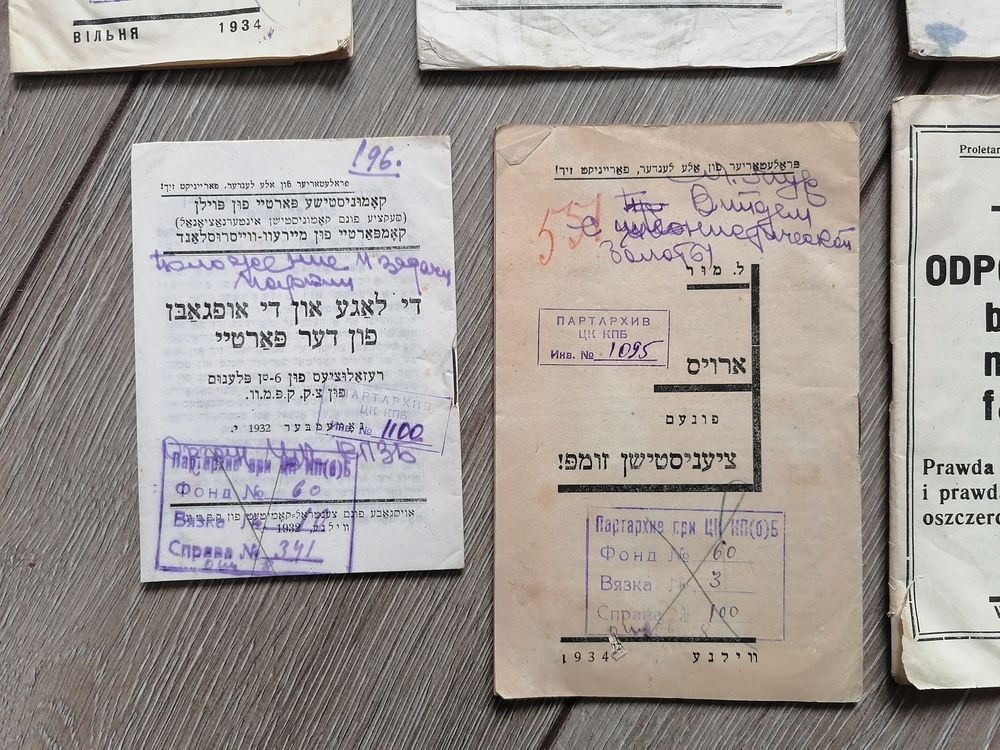 ВІЛЬНЯ 1934
196.
פּראָלעטאַריער פון אַלע לענדער, פאַרייניקט זיך!
קאָמוניסטישע פּאַרטיי פון פּוילן
(סעקציע פונם קאָמוניסטישן אינטערנאַציאָנאַל)
קאָמפּאַרטיי פון מייַרעוו-ווייַסרוסלאַנד
Положение и задачи
партии
די לאַגע און די אופגאַבן
פון דער פּאַרטיי
רעזאָלוציעס פון 6-טן פּלענום
פון צ.ק. ק.פּ.מ.וו.
ПАРТАРХИВ
ЦК КПБ
Инв. № 1100
נאָוועמבער 1932 י.
Партархив при ЦК КП(б)Б
Фонд № 60
Вязка №
Справа № 341
ווילנע, 1932
פּראָלעטאַריער פון אַלע לענדער, פאַרייניקט זיך!
Л. Мур
551
Выйдем
с сионистической
болоты
ל. מור
ПАРТАРХИВ
ЦК КПБ
Инв. № 1095
ארויס
פונעם
ציעניסטישן זומפּ!
Партархив при ЦК КП(б)Б
Фонд № 60
Вязка № 3
Справа № 100
ווילנע 1934
Proletar
ODPO
b
n
fa
Prawda
i prawd
oszczerc